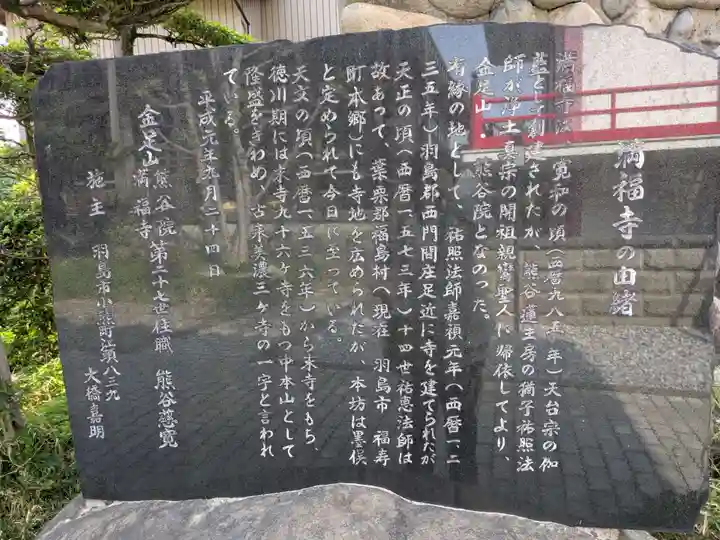 満福寺の由緒
満福寺は、寛和の頃（西暦九八五年）天台宗の伽
藍として創建されたが、熊谷蓮生房の猶子祐照法
師が浄土真宗の開祖親鸞聖人に帰依してより、
金足山 熊谷院となのった。
有縁の地として、祐照法師嘉禎元年（西暦一、二
三五年）羽島郡西門間庄足近に寺を建てられたが
天正の頃（西暦一、五七三年）十四世祐恵法師は
故あって、葉栗郡福島村（現在 羽島市 福寿
町本郷）にも寺地を広められたが、本坊は墨俣
と定められて今日に至っている。
天文の頃（西暦一、五三六年）から末寺をもち、
徳川期には末寺九十六ヶ寺をもつ中本山として
隆盛をきわめ、古来美濃三ヶ寺の一字と言われ
ている。
平成元年九月二十四日
金足山 熊谷院 満福寺 第二十七世住職 熊谷慈寛
施主 羽島市小熊町江頭八三九
大橋嘉明